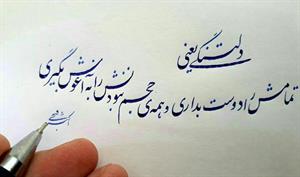 دلتنگی یعنی
تمامش را دوست بداری و همه‌ی
حجم نبودنش را به آغوش بگیری